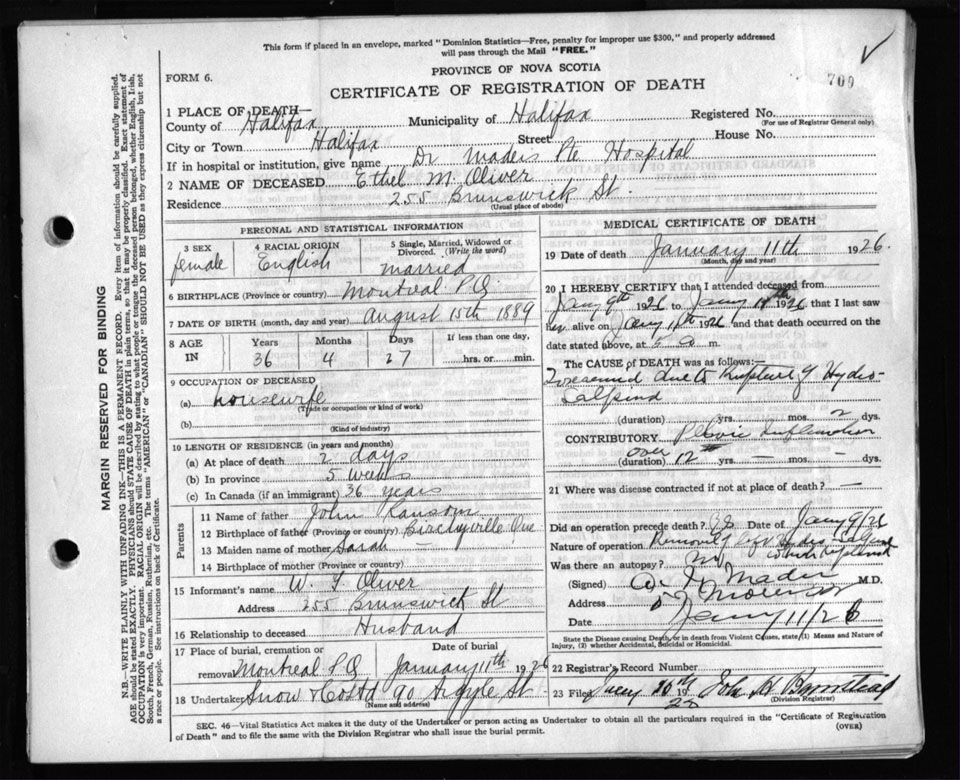 This form if placed in an envelope, marked "Dominion Statistics—Free, penalty for improper use $300," and properly addressed
will pass through the Mail "FREE."
PROVINCE OF NOVA SCOTIA
FORM 6.
CERTIFICATE OF REGISTRATION OF DEATH
709
1 PLACE OF DEATH—
County of Halifax Municipality of Halifax Registered No.
(For use of Registrar General only)
City or Town Halifax Street House No.
If in hospital or institution, give name Dr Maders Pte Hospital
2 NAME OF DECEASED Ethel M. Oliver
Residence 255 Brunswick St.
(Usual place of abode)
PERSONAL AND STATISTICAL INFORMATION
3 SEX 4 RACIAL ORIGIN 5 Single, Married, Widowed or Divorced. (Write the word)
female English married
6 BIRTHPLACE (Province or country) Montreal P.Q.
7 DATE OF BIRTH (month, day and year) August 15th 1889
8 AGE IN Years Months Days If less than one day,
36 4 27 hrs. or min.
9 OCCUPATION OF DECEASED
(a) housewife
(Trade or occupation or kind of work)
(b)
(Kind of industry)
10 LENGTH OF RESIDENCE (in years and months)
(a) At place of death 2 days
(b) In province 5 weeks
(c) In Canada (if an immigrant) 36 years
Parents
11 Name of father John Ransom
12 Birthplace of father (Province or country) Que
13 Maiden name of mother Sarah
14 Birthplace of mother (Province or country)
15 Informant's name W. F. Oliver
Address 255 Brunswick St
16 Relationship to deceased Husband
17 Place of burial, cremation or removal Montreal P.Q. Date of burial January 11th 1926
18 Undertaker Snow & Co Ltd 90 Argyle St
(Name and address)
MEDICAL CERTIFICATE OF DEATH
19 Date of death January 11th 1926
(Month, day and year)
20 I HEREBY CERTIFY that I attended deceased from
Jany 9th 1926 to Jany 11th 1926 that I last saw
her alive on Jany 11th 1926 and that death occurred on the
date stated above, at 5 a m.
The CAUSE OF DEATH was as follows:—
due to Rupture of Hydro-
salpinx
(duration) yrs. — mos. 2 dys.
CONTRIBUTORY Pelvic Inflamation
over
(duration) 12 yrs. — mos. — dys.
21 Where was disease contracted if not at place of death? —
Did an operation precede death? Date of Jany 9/26
Nature of operation Removal of Hydro-salpinx
Was there an autopsy? no
(Signed) Mader M.D.
Address
Date Jany 11/26
State the Disease causing Death, or in death from Violent Causes, state (1) Means and Nature of
Injury, (2) whether Accidental, Suicidal or Homicidal.
22 Registrar's Record Number
23 Filed Jany 19 John H Barnstead
(Division Registrar)
SEC. 46—Vital Statistics Act makes it the duty of the Undertaker or person acting as Undertaker to obtain all the particulars required in the "Certificate of Registration
of Death" and to file the same with the Division Registrar who shall issue the burial permit.
(OVER)
MARGIN RESERVED FOR BINDING
N.B.—WRITE PLAINLY WITH UNFADING INK—THIS IS A PERMANENT RECORD. Every item of information should be carefully supplied.
AGE should be stated EXACTLY. PHYSICIANS should STATE CAUSE OF DEATH in plain terms, so that it may be properly classified. Exact statement of
OCCUPATION is very important. RACIAL ORIGIN will be described by stating to what people or tongue the deceased person belonged, whether English, Irish,
Scotch, French, German, Russian, Ruthenian, etc. The terms "AMERICAN" or "CANADIAN" SHOULD NOT BE USED as they express citizenship but not
a race or people. See instructions on back of Certificate.